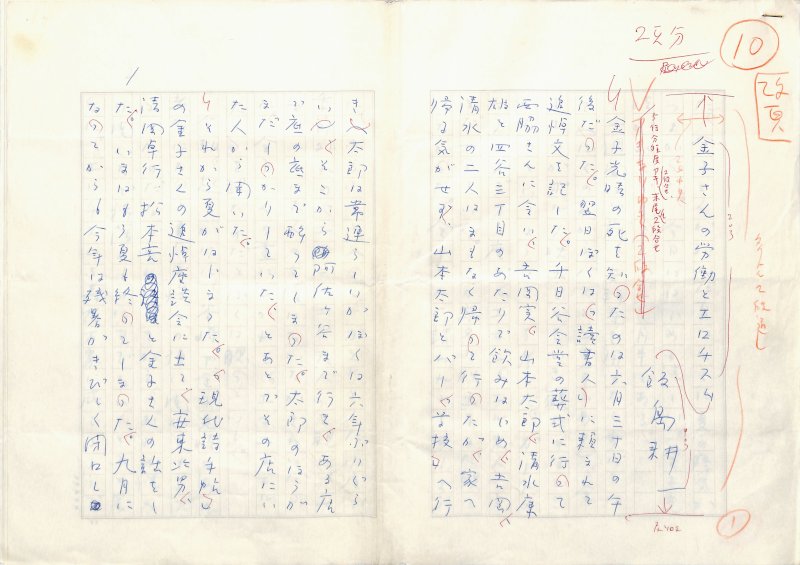 10
改頁
2頁分
金子さんの労働とエロチスム
飯島耕一
金子光晴の死を知ったのは六月三十日の午
後だった。翌日ぼくは「読書人」に頼まれて
追悼文を記した。千日谷会堂の葬式に行って
西脇さんに会い、吉岡実、山本太郎、清水康
雄と四谷三丁目のあたりで飲みはじめ、吉岡、
清水の二人はまもなく帰って行ったが、家へ
帰る気がせず、山本太郎とバー「学校」へ行
1
き、太郎は常連らしいがぼくは六年ぶりぐら
い、そこから阿佐ヶ谷まで行き、ある店
で底の底まで酔ってしまった。太郎のほうが
まだしっかりしていた、とあとでその店にい
た人から聞いた。
それから夏がはじまった。「現代詩手帖」
の金子さんの追悼座談会に出て、安東次男、
清岡卓行、と金子さんの話をし
た。いまはもう夏も終ってしまった。九月に
なってからも今年は残暑がきびしく閉口し
1